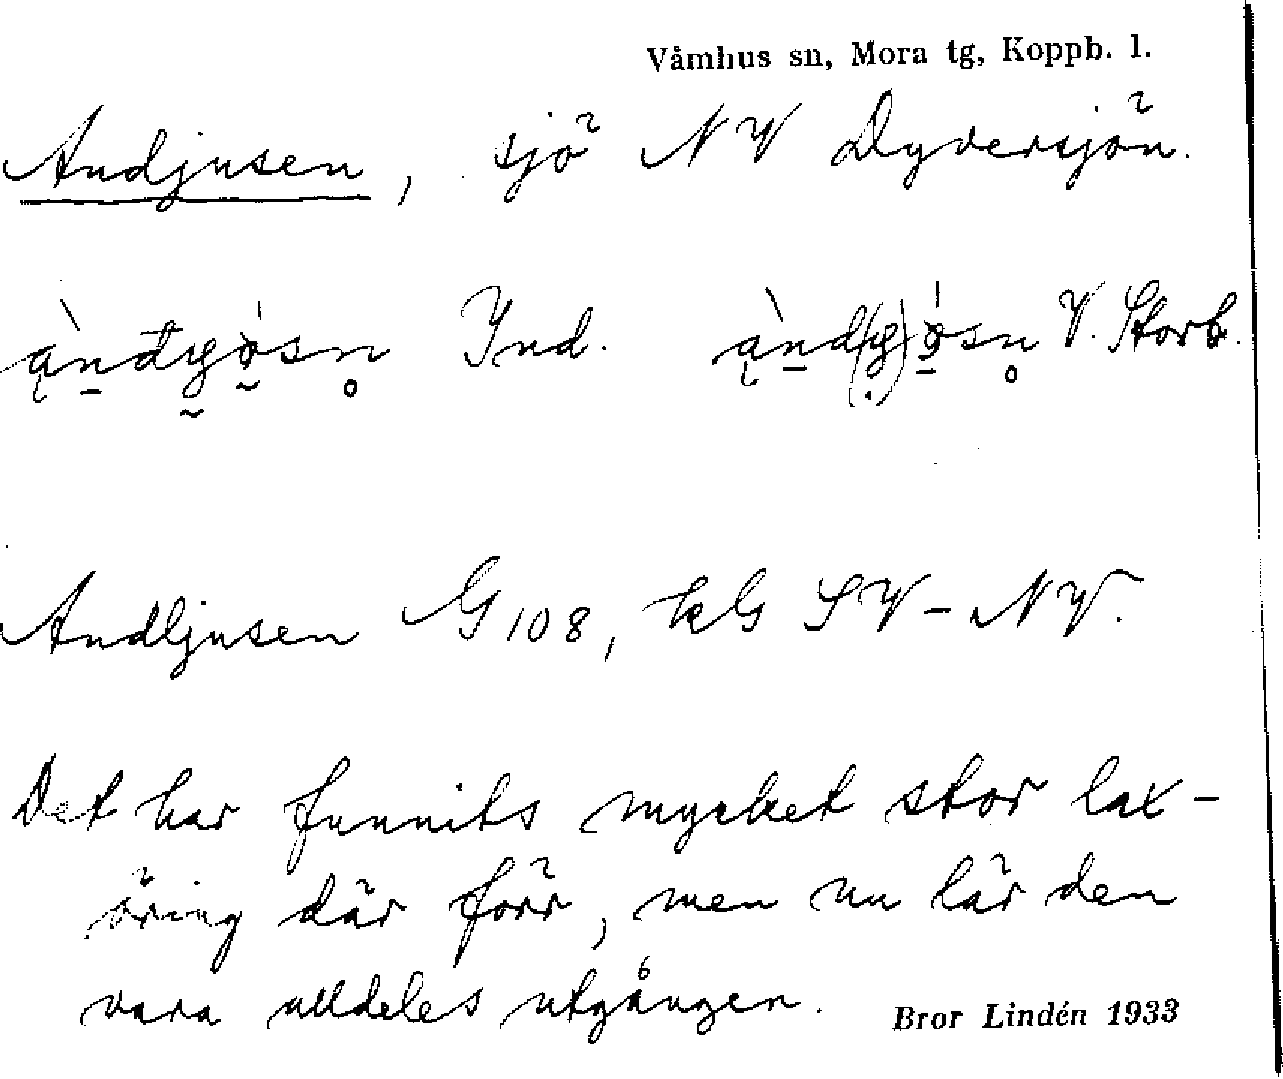 Våmhus sn, Mora tg, Koppb. l.
Andjusen, sjö NV Dyversjön.
Ind. V. Storb.
Andljusen G 108, kG SV–NV.
Det har funnits mycket stor lax-
öring där förr, men nu lär den
vara alldeles utgången. Bror Lindén 1933